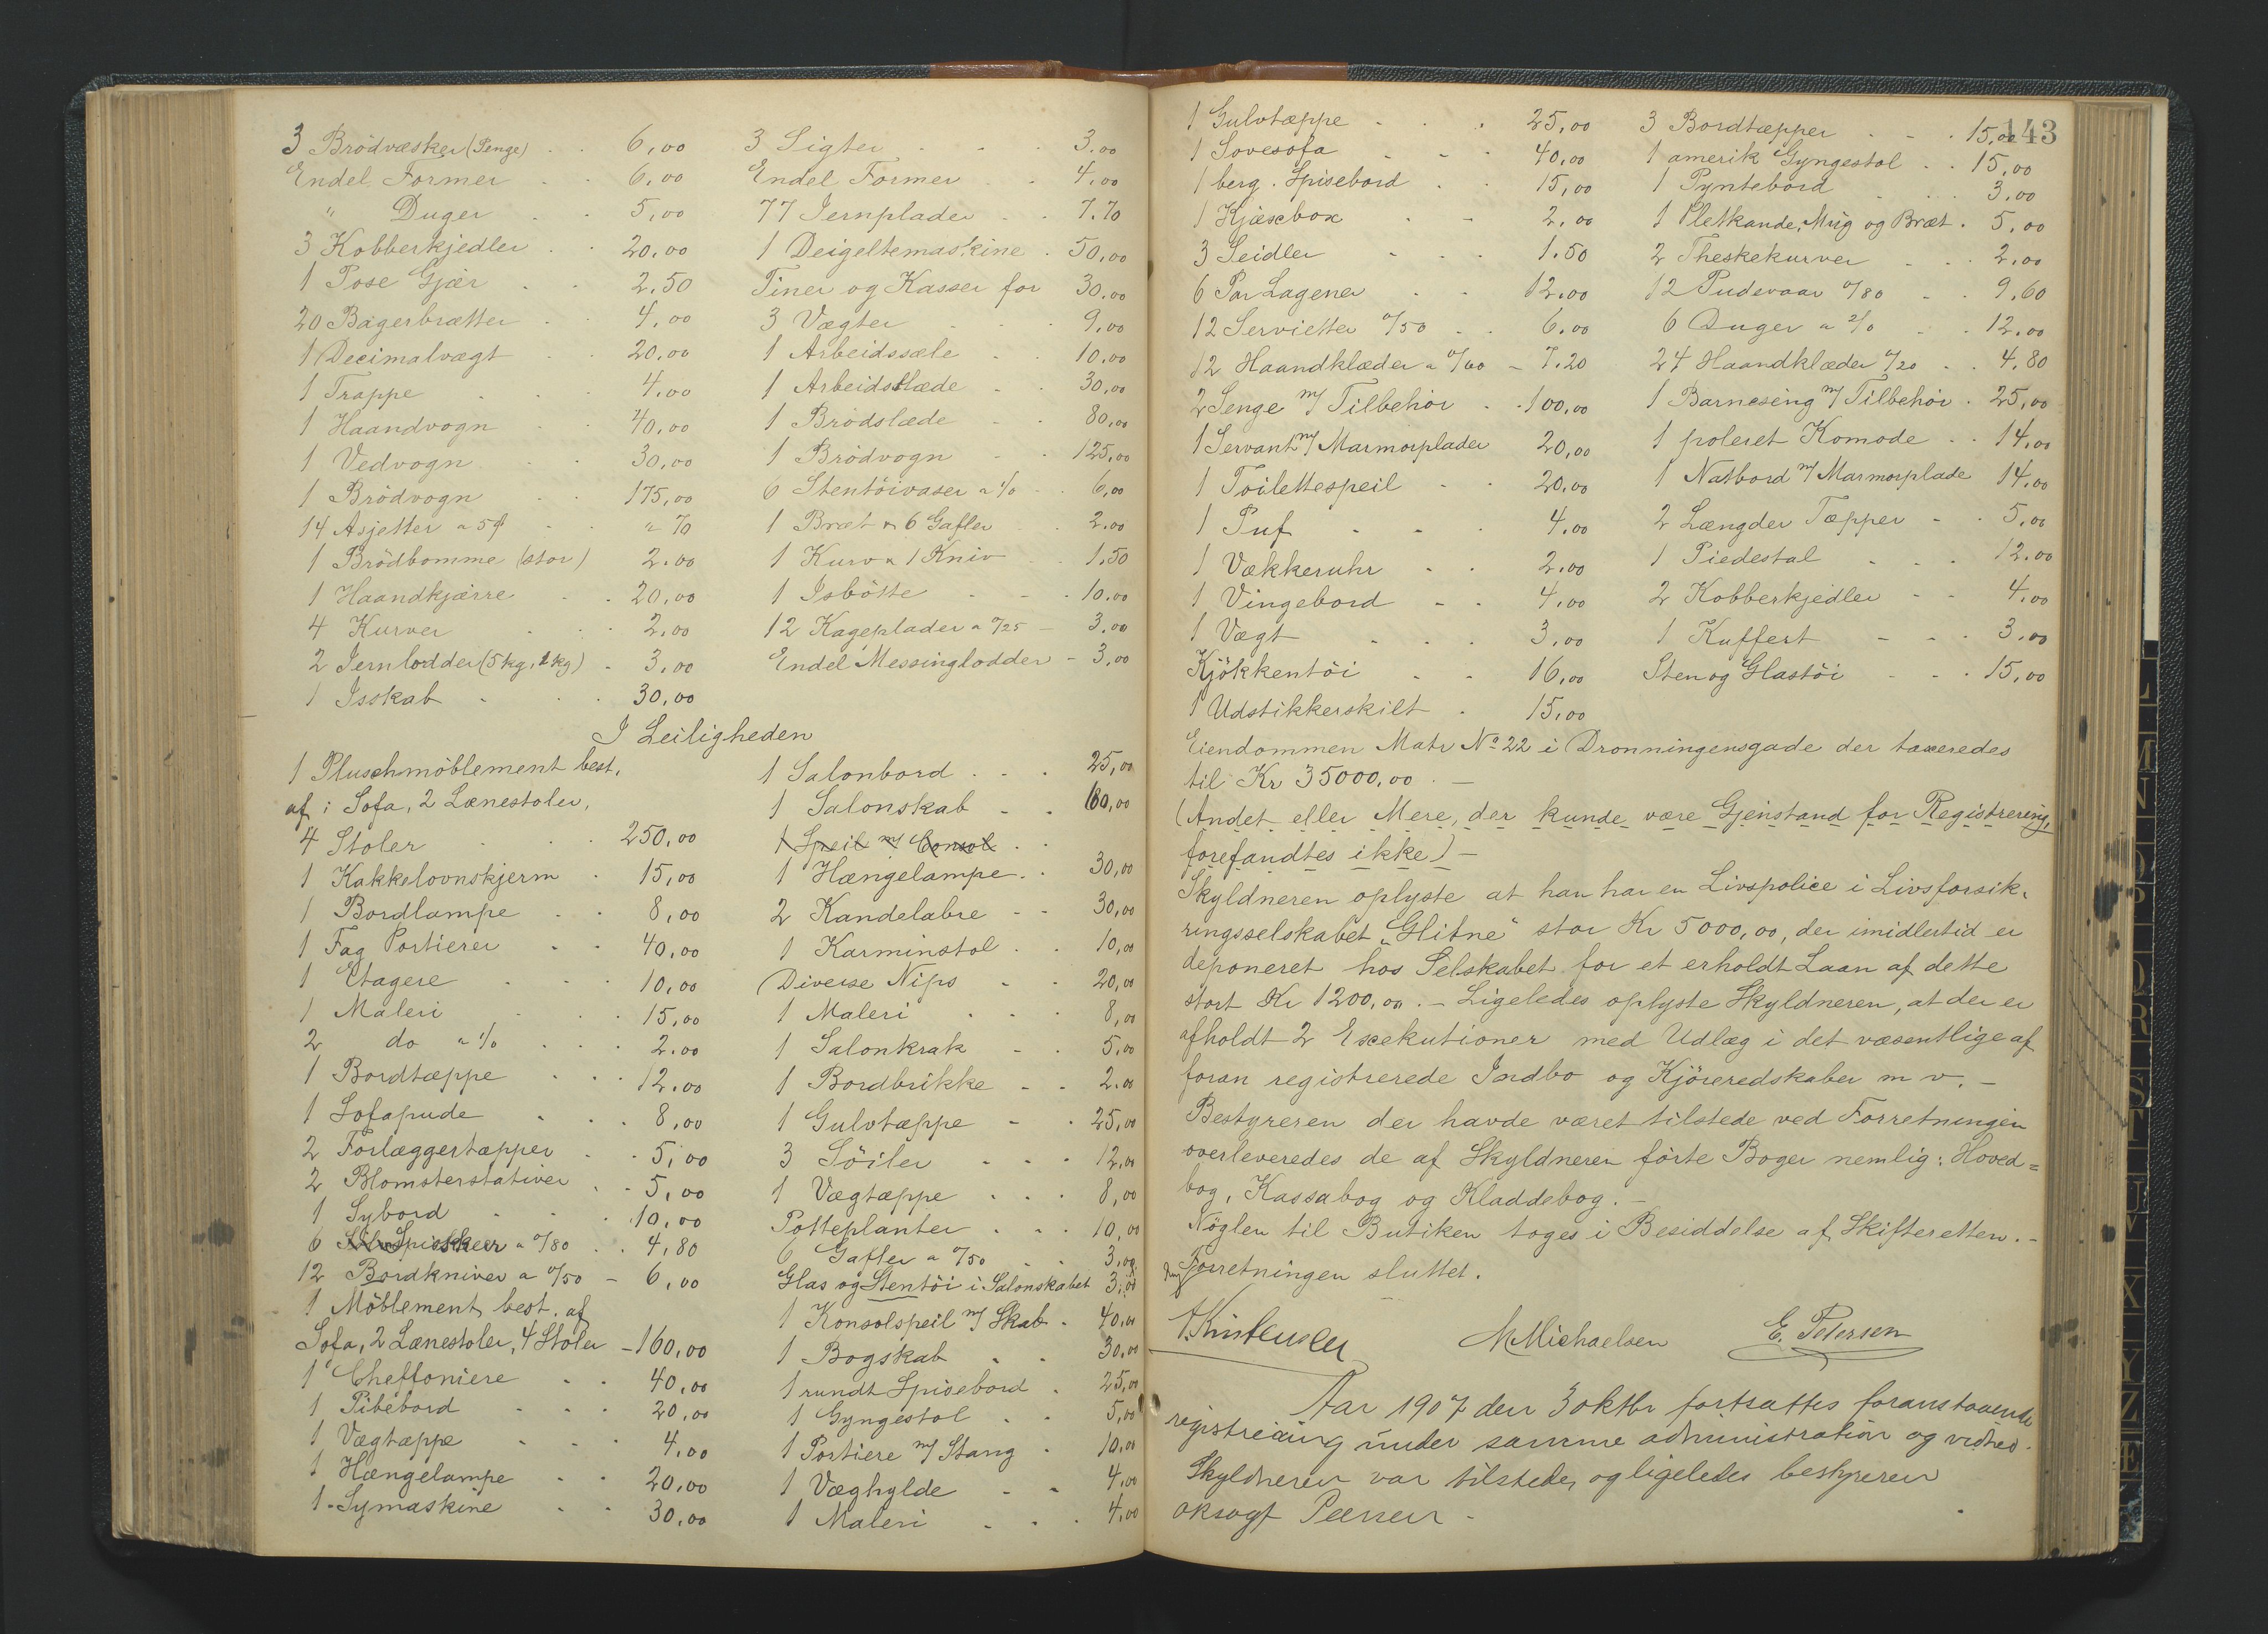 3 Brödvæsker (Penge) . . 6,00
Endel Former . . 6,00
" Duger . . 5,00
3 Kobberkjedler . . 20,00
1 Pose Gjær . . 2.50
20 Bagerbrætter . . 4,00
1 Decimalvægt . . 20,00
1 Trappe . . . 4,00
1 Haandvogn . . 40,00
1 Vedvogn . . 30,00
1 Brödvogn . . 175,00
14 Asjetter a 5 . . " 70
1 Brödbomme (stor) 2.00
1 Haandkjærre . . 20,00
4 Kurver . . . 2,00
2 Jernlodder (5 kg, 2 kg) . 3,00
1 Isskab . . . 30,00
3 Sigter . . . 3,00
Endel Former . . 4,00
77 Jernplader . . 7.70
1 Deigeltemaskine . 50,00
Tiner og Kasser for 30,00
3 Vægter . . . 9,00
1 Arbeidssele . . 10,00
1 Arbeidsslæde . . 30,00
1 Brödslæde . . 80,00
1 Brödvogn . . 125,00
6 Stentöivaser a 1/0 . . 6,00
1 Bræt & 6 Gafler . 2.00
1 Kurv & 1 Kniv . . 1.50
1 Isbötte . . . 10.00
12 Kageplader a 0/25 - 3,00
Endel Messinglodder - 3,00
I Leiligheden
1 Pluschmöblement best.
af: Sofa, 2 Lænestoler,
4 Stoler . . . 250,00
1 Kakkelovnskjerm . 15,00
1 Bordlampe . . 8,00
1 Fag Portierer . . 40,00
1 Etagere . . . 10,00
1 Maleri . . . 15,00
2 do a 1/0 . . . 2.00
1 Bordtæppe . . . 12.00
1 Sofapude . . . 8,00
2 Forlæggertæpper . . 5,00
2 Blomsterstativer . . 5,00
1 Sybord . . . 10,00
6 Spiskeer a 0/80 . . 4,80
12 Bordkniver a 0/50 - 6,00
1 Möblement best. af
Sofa, 2 Lænestoler, 4 Stoler - 160,00
1 Cheffoniere . . 40,00
1 Pibebord . . . 20,00
1 Vægtæppe . . . 4,00
1 Hængelampe . . 20,00
1 Symaskine . . 30,00
1 Salonbord . . . 25,00
1 Salonskab . . 60,00
1 Speil m/ Consol . .
1 Hængelampe . . 30,00
2 Kandelabre . . 30,00
1 Karminstol . . 10,00
Diverse Nips . . 20,00
1 Maleri . . . 8,00
1 Salonkrak . . 5,00
1 Bordbrikke . . 2.00
1 Gulvtæppe . . 25,00
3 Söiler . . . 12,00
1 Vægtæppe . . . 8,00
Potteplanter . . . 10,00
6 Gafler a 0/50 . . 3,00
Glas og Stentöi i Salonskabet 3,00
1 Konsolspeil m/ Skab . 40,00
1 Bogskab . . 30,00
1 rundt Spisebord . 25,00
1 Gyngestol . . 5,00
1 Portiere m/ Stang . 10,00
1 Væghylde . . 4,00
1 Maleri . . . 4,00
143
1 Gulvtæppe . . . 25,00
1 Sovesofa . . . 40,00
1 berg. Spisebord . . 15,00
1 Kjæxbox . . 2,00
3 Seidler . . . 1.50
6 Par Lagener . . 12.00
12 Servietter 0/50 . . 6.00
12 Haandklæder a 0/60 - 7.20
2 Senge m/ Tilbehör . . 100,00
1 Servant m/ Marmorplader 20,00
1 Toilettespeil . . 20,00
1 Puf . . . 4,00
1 Vækkeruhr . . 2,00
1 Vingebord . . 4,00
1 Vægt . . . 3,00
Kjökkentöi . . 16,00
1 Udstikkerskilt . 15,00
3 Bordtæpper . . . 15,00
1 amerik Gyngestol . . 15,00
1 Pyntebord . . . 3,00
1 Pletkande, Mug og Bræt . 5,00
2 Theskekurver . . . 2,00
12 Pudevaar 0/80 . . 9.60
6 Duger a 2/0 . . 12,00
24 Haandklæder 0/20 . . 4.80
1 Barneseng m/ Tilbehör . 25,00
1 poleret Komode . . 14,00
1 Natbord m/ Marmorplade 14,00
2 Længder Tæpper . . 5,00
1 Piedestal . . . 12.00
2 Kobberkjedler . . 4,00
1 Kuffert . . . 3,00
Sten og Glastöi . . . 15,00
Eiendommen Matr No 22 i Dronningensgade der taxeredes
til Kr 35000,00 . —
(Andet eller Mere, der kunde være Gjenstand for Registrering,
forefandtes ikke) —
Skyldneren oplyste at han har en Livspolice i Livsforsik-
ringsselskabet „Glitne" stor Kr 5000,00, der imidlertid er
deponeret hos Selskabet for et erholdt Laan af dette
stort Kr 1200,00. — Ligeledes oplyste Skyldneren, at der er
afholdt 2 Exekutioner med Udlæg i det væsentlige af
foran registrerede Indbo og Kjöreredskaber m v. —
Bestyreren der havde været tilstede ved Forretningen
overleveredes de af Skyldneren förte Böger nemlig: Hoved=
bog, Kassabog og Kladdebog. —
Nöglen til Butiken toges i Besiddelse af Skifteretten. —
Forretningen sluttet.
A Kristensen M Michaelsen E. Petersen
Aar 1907 den 3 oktbr fortsattes foranstaaende
registrering under samme administration og vidner.
Skyldneren var tilstede, og ligeledes bestyreren
oksagf